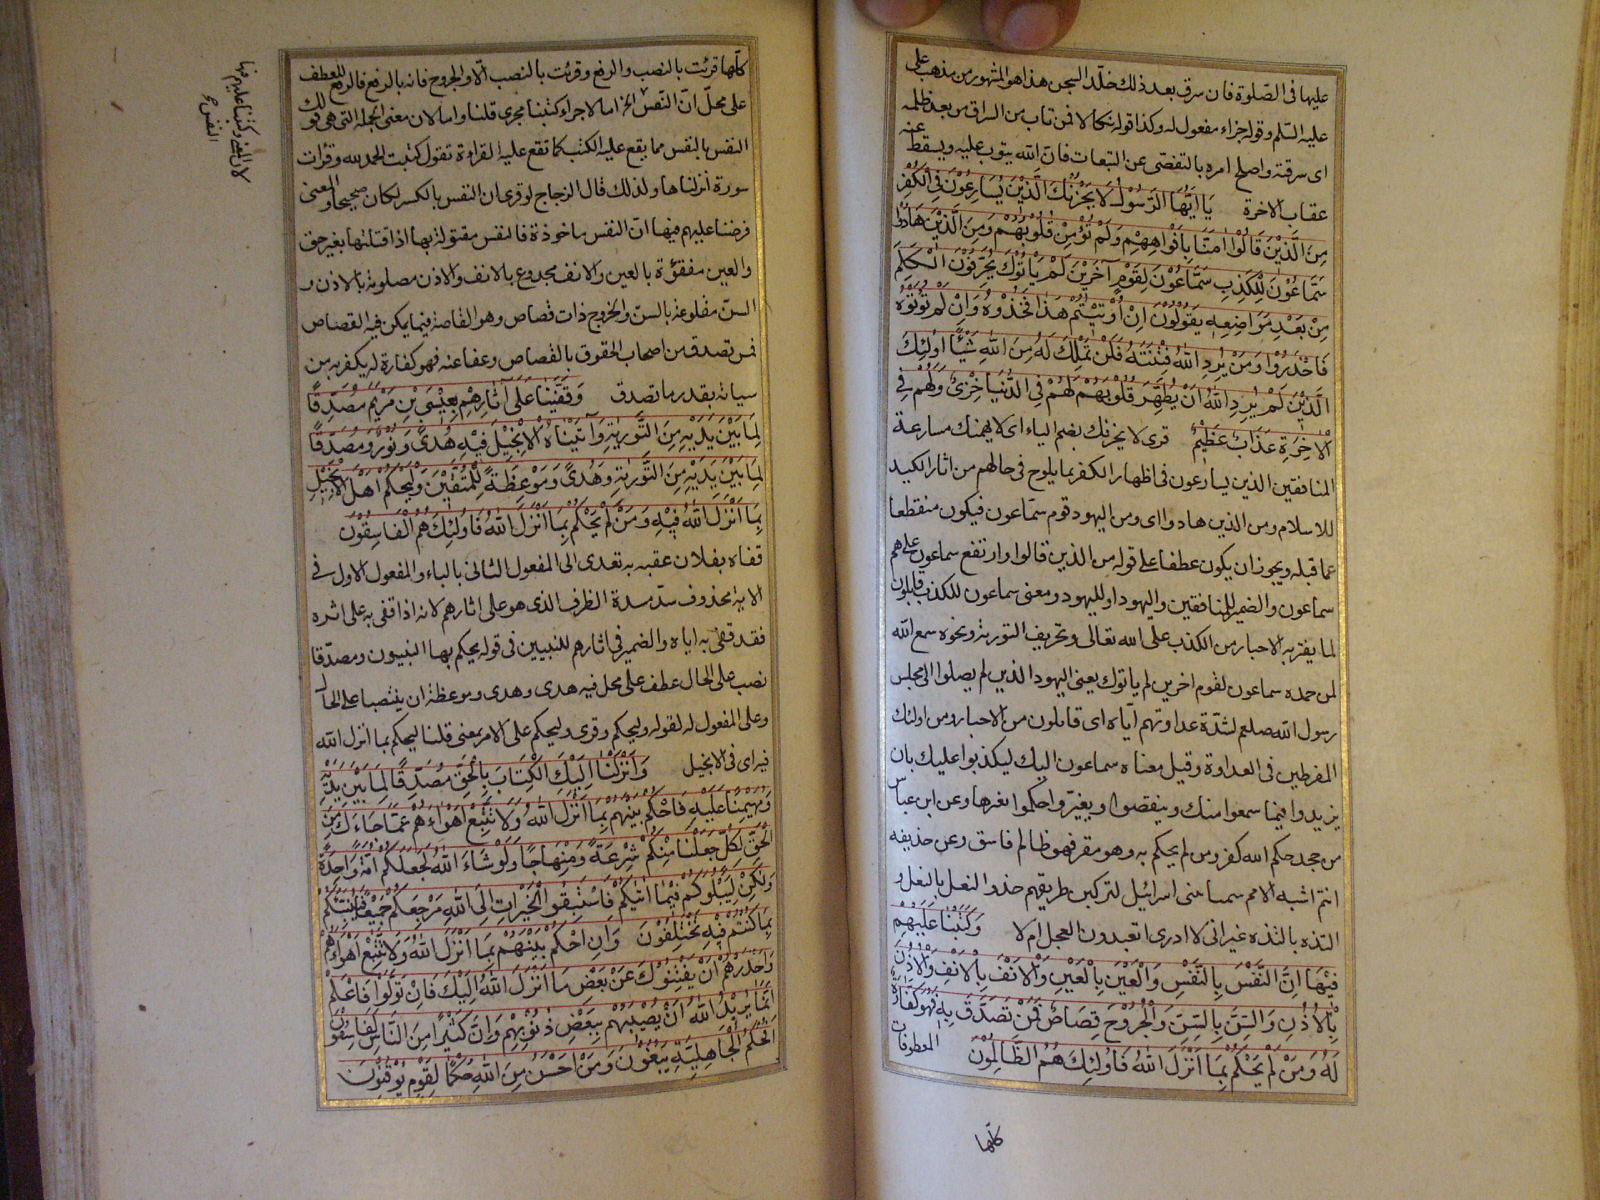 عليها فى الصّلوة فان سرق بعد ذلك خلّد السجن هذا هو المشهور من مذهب على
عليه السّلم وقوله جزاء مفعول له وكذا قوله نكالا فمن تاب من السراق من بعد ظلمه
اى سرقته واصلح امره بالتفصّى عن التبعات فان الله يتوب عليه ويسقط عنه
عقاب الاخرة يَا اَيُّهَا الرَّسُوْلُ لَا يَحْزُنْكَ الَّذِيْنَ يُسَارِعُوْنَ فِى الْكُفْرِ
مِنَ الَّذِيْنَ قَالُوْا اٰمَنَّا بِاَفْوَاهِهِمْ وَلَمْ تُؤْمِنْ قُلُوْبُهُمْ وَمِنَ الَّذِيْنَ هَادُوْا
سَمَّاعُوْنَ لِلْكَذِبِ سَمَّاعُوْنَ لِقَوْمٍ اٰخَرِيْنَ لَمْ يَاْتُوْكَ يُحَرِّفُوْنَ الْكَلِمَ
مِنْ بَعْدِ مَوَاضِعِهِ يَقُوْلُوْنَ اِنْ اُوْتِيْتُمْ هٰذَا فَخُذُوْهُ وَاِنْ لَمْ تُؤْتَوْهُ
فَاحْذَرُوْا وَمَنْ يُرِدِ اللهُ فِتْنَتَهُ فَلَنْ تَمْلِكَ لَهُ مِنَ اللهِ شَيْئًا اُولٰئِكَ
الَّذِيْنَ لَمْ يُرِدِ اللهُ اَنْ يُطَهِّرَ قُلُوْبَهُمْ لَهُمْ فِى الدُّنْيَا خِزْىٌ وَلَهُمْ فِى
الْاٰخِرَةِ عَذَابٌ عَظِيْمٌ قرئ لا يحزنك بضم الياء اى لا يهمنك مسارعة
المنافقين الذين يسارعون فى اظهار الكفر بما يلوح فى حالهم من اثار الكيد
للاسلام ومن الذين هادوا اى ومن اليهود قوم سمّاعون فيكون منقطعا
عما قبله ويجوز ان يكون عطفا على قوله من الذين قالوا وارتفع سماعون على هم
سماعون والضمير للمنافقين واليهود او لليهود ومعنى سماعون للكذب قابلون
لما يفتريه الاحبار من الكذب على الله تعالى وتحريف التورية ونحوه سمع الله
لمن حمده سماعون لقوم اخرين لم ياتوك يعنى اليهود الذين لم يصلوا الى مجلس
رسول الله صلعم لشدّة عداوتهم اياه اى قابلون من الاحبار ومن اولئك
المفرطين فى العداوة وقيل معناه سماعون اليك ليكذبوا عليك بان
يزيدوا فيما سمعوا منك وينقصوا ويغيّروا احكموا بغيرها وعن ابن عباس
من جحد حكم الله كفر ومن لم يحكم به وهو مقر فهو ظالم فاسق وعن حذيفه
انتم اشبه الامم سمتا ببنى اسرائيل لتركبن طريقهم حذو النعل بالنعل و
القذه بالقذه غير انى لا ادرى اتعبدون العجل ام لا وَكَتَبْنَا عَلَيْهِمْ
فِيْهَا اِنَّ النَّفْسَ بِالنَّفْسِ وَالْعَيْنَ بِالْعَيْنِ وَالْاَنْفَ بِالْاَنْفِ وَالْاُذُنَ
بِالْاُذُنِ وَالسِّنَّ بِالسِّنِّ وَالْجُرُوْحَ قِصَاصٌ فَمَنْ تَصَدَّقَ بِهِ فَهُوَ كَفَّارَةٌ
لَهُ وَمَنْ لَمْ يَحْكُمْ بِمَا اَنْزَلَ اللهُ فَاُولٰئِكَ هُمُ الظَّالِمُوْنَ المعطوفات
كلّها
كلّها قرئت بالنصب والرفع وقرئت بالنصب الّا والجروح فانه بالرفع فالرفع للعطف
على محلّ انّ النّفس الخ اما لاجراء كتبنا مجرى قلنا واما لان معنى الجملة التى هى قولك
النفس بالنفس مما يقع عليه الكتب كما تقع عليه القراءة تقول كتبت الحمد لله وقرات
سورة أنزلناها ولذلك قال الزجاج لو قرئ ان النفس بالكسر لكان صحيحا والمعنى
فرضنا عليهم فيها انّ النفس ماخوذة فالنفس مقتولة بها اذا قتلتها بغير حق
والعين مفقؤة بالعين والانف مجدوع بالانف والاذن مصلومة بالاذن و
السنّ مقلوعة بالسنّ والجروح ذات قصاص وهو المقاصة فيما يمكن فيه القصاص
فمن تصدق من اصحاب الحقوق بالقصاص وعفا عنه فهو كفارة له يكفر به من
سيئاته بقدر ما تصدق وَقَفَّيْنَا عَلٰى اٰثَارِهِمْ بِعِيْسَى بْنِ مَرْيَمَ مُصَدِّقًا
لِمَا بَيْنَ يَدَيْهِ مِنَ التَّوْرٰيةِ وَاٰتَيْنَاهُ الْاِنْجِيْلَ فِيْهِ هُدًى وَنُوْرٌ وَمُصَدِّقًا
لِمَا بَيْنَ يَدَيْهِ مِنَ التَّوْرٰيةِ وَهُدًى وَمَوْعِظَةً لِلْمُتَّقِيْنَ وَلْيَحْكُمْ اَهْلُ الْاِنْجِيْلِ
بِمَا اَنْزَلَ اللهُ فِيْهِ وَمَنْ لَمْ يَحْكُمْ بِمَا اَنْزَلَ اللهُ فَاُولٰئِكَ هُمُ الْفَاسِقُوْنَ
قفاه بفلان عقبه به تعدى الى المفعول الثانى بالباء والمفعول الاول فى
الاية محذوف سدّ مسدة الظرف الذى هو على اثارهم لانه اذا قفى به على اثره
فقد قفى به اياه والضمير فى اثارهم للنبيين فى قوله يحكم بها النبيون ومصدّقا
نصب على الحال عطف على محل فيه هدى وهدى وموعظة ان ينتصبا على الحال
وعلى المفعول له لقوله وليحكم وقرئ وليحكم على الامر بمعنى قلنا ليحكم بما انزل الله
فيه اى فى الانجيل وَاَنْزَلْنَا اِلَيْكَ الْكِتَابَ بِالْحَقِّ مُصَدِّقًا لِمَا بَيْنَ يَدَيْهِ
وَمُهَيْمِنًا عَلَيْهِ فَاحْكُمْ بَيْنَهُمْ بِمَا اَنْزَلَ اللهُ وَلَا تَتَّبِعْ اَهْوَاءَهُمْ عَمَّا جَاءَكَ مِنَ
الْحَقِّ لِكُلٍّ جَعَلْنَا مِنْكُمْ شِرْعَةً وَمِنْهَاجًا وَلَوْ شَاءَ اللهُ لَجَعَلَكُمْ اُمَّةً وَاحِدَةً
وَلٰكِنْ لِيَبْلُوَكُمْ فِيْمَا اٰتٰيكُمْ فَاسْتَبِقُوا الْخَيْرَاتِ اِلَى اللهِ مَرْجِعُكُمْ جَمِيْعًا فَيُنَبِّئُكُمْ
بِمَا كُنْتُمْ فِيْهِ تَخْتَلِفُوْنَ وَاَنِ احْكُمْ بَيْنَهُمْ بِمَا اَنْزَلَ اللهُ وَلَا تَتَّبِعْ اَهْوَاءَهُمْ
وَاحْذَرْهُمْ اَنْ يَفْتِنُوْكَ عَنْ بَعْضِ مَا اَنْزَلَ اللهُ اِلَيْكَ فَاِنْ تَوَلَّوْا فَاعْلَمْ
اَنَّمَا يُرِيْدُ اللهُ اَنْ يُصِيْبَهُمْ بِبَعْضِ ذُنُوْبِهِمْ وَاِنَّ كَثِيْرًا مِنَ النَّاسِ لَفَاسِقُوْنَ
اَفَحُكْمَ الْجَاهِلِيَّةِ يَبْغُوْنَ وَمَنْ اَحْسَنُ مِنَ اللهِ حُكْمًا لِقَوْمٍ يُوْقِنُوْنَ
لان المعنى وكتبنا عليهم فيها
النفس